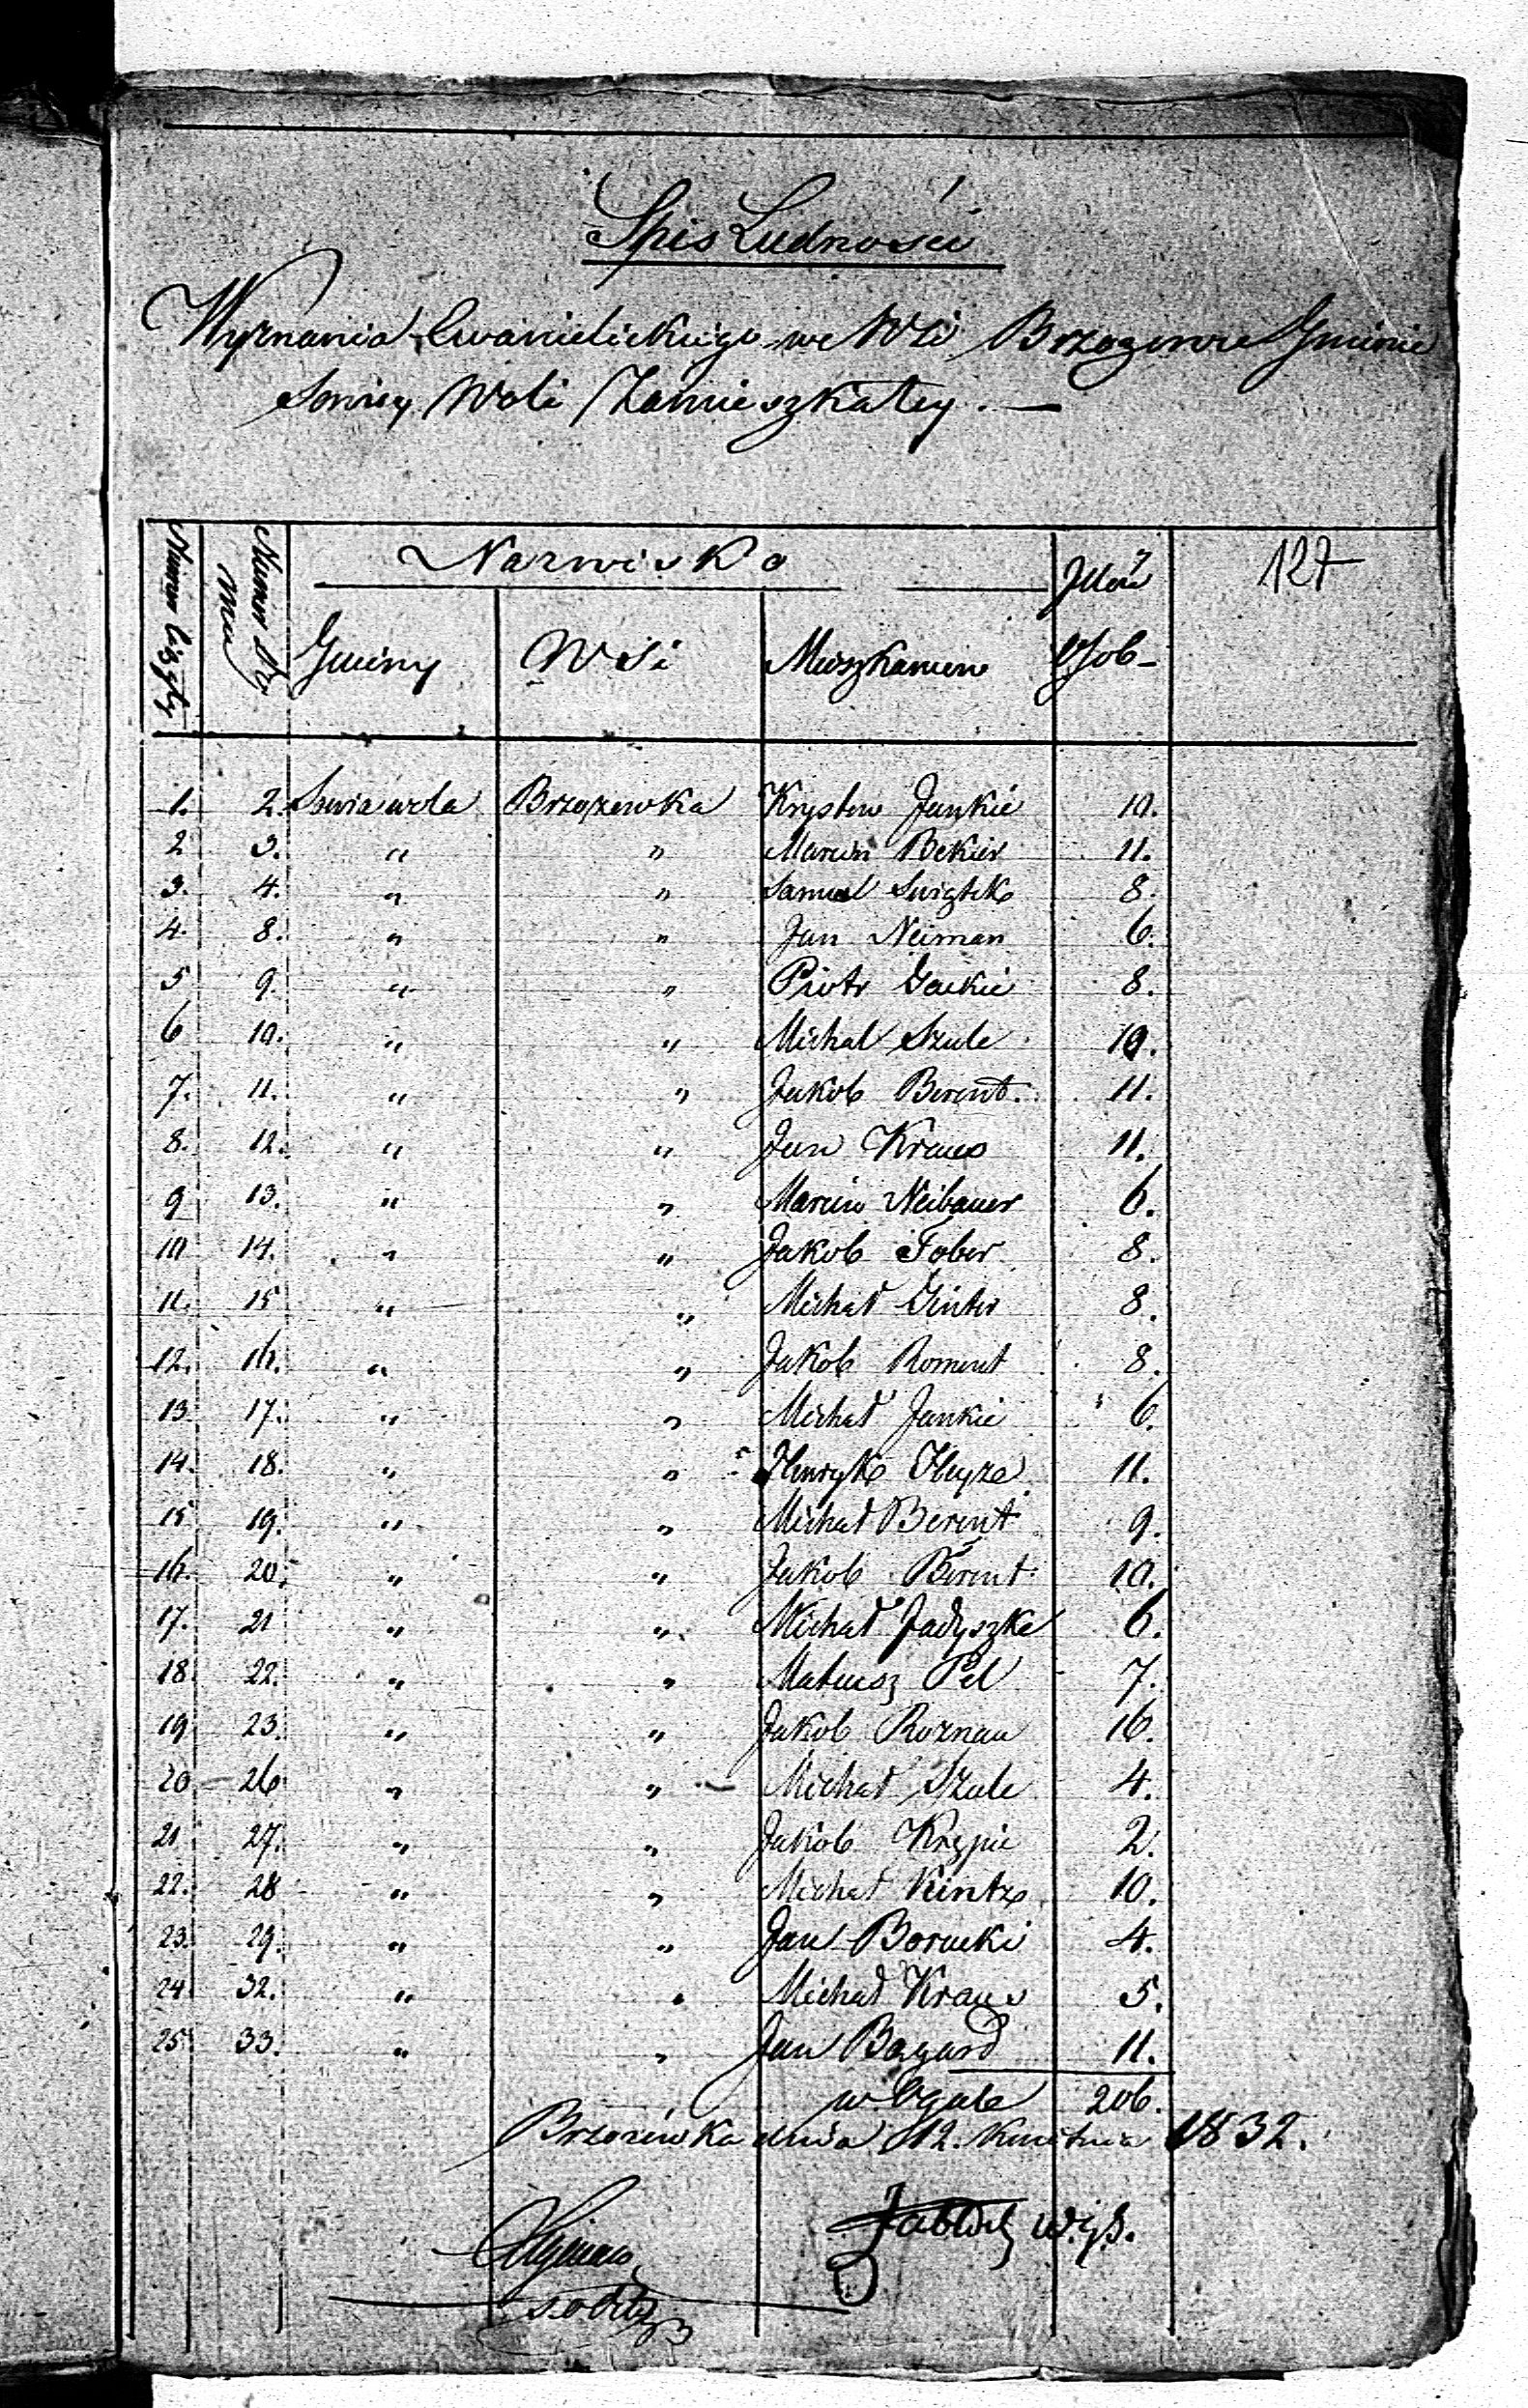 Spis Ludności
Wyznania Ewanielickiego we Wsi Brzozowce Gminie
Sowiey Woli Zamieszkałey. —
127
Numer liszty Numer Do mu Nazwiska Jllość
Gminy Wsi Mieszkancow Osob
1. 2. Sowia wola Brzozowka Krystow Jankie 10.
2 3. " " Marcin Bekier 11.
3. 4. " " Samuel Swiątek 8.
4. 8. " " Jan Neiman 6.
5 9. " " Piotr Gackie 8.
6 10. " " Michał Szulc 10.
7. 11. " " Jakob Berent. 11.
8. 12. " " Jan Kraus 11.
9 13. " " Marcin Neibauer 6.
10 14. " " Jakob Fober 8.
11. 15 " " Michał Ginter 8.
12. 16. " " Jakob Roment 8.
13 17. " " Michał Jankie 6.
14. 18. " " Henryk Heyze 11.
15 19. " " Michał Berent 9.
16. 20. " " Jakob Berent 10.
17. 21 " " Michał Jadyszke 6.
18. 22. " " Mateusz Pel 7.
19 23. " " Jakob Roznau 16.
20 26 " " Michał Szulc 4.
21 27. " " Jakob Krępie 2.
22. 28 " " Michał Kintze 10.
23. 29. " " Jan Borucki 4.
24 32. " " Michał Kraus 5.
25 33. " " Jan Bogard 11.
w Ogule 206.
Brzozówka dnia 12. Kwietnia 1832.
w.g.s.